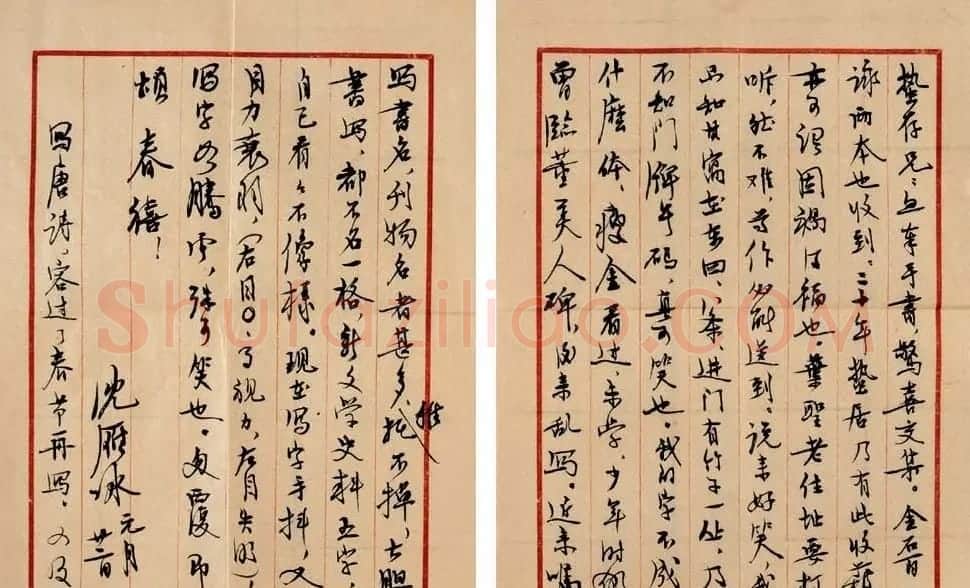 蛰存兄：
手书，惊喜交集。金石百
咏两本也收到，二十年蛰居乃有此收获
亦可谓因祸得福也，葉聖老住址要打
听，然不难，尊作必能送到。说来好笑，我
只知其寓在东四八条，进门有竹子一丛，乃
不知门牌号码，真可笑也。我的字不成
什麽体，瘦金看过未学，少年时
曾临董美人碑，后来乱写。近来嘱
写書名、刊物名者甚多，推托不掉，大胆
書写，都不名一格，新文学史料五字，
自己看看不像样。现在写字手抖，又
目力衰弱，（右目0.3视力，左目失明），
写字如腾云，殊可笑也。匆覆即
颂
春禧！
沈雁冰 元月
写唐诗，容过了春节再写。又及
Shufaziliao.COM